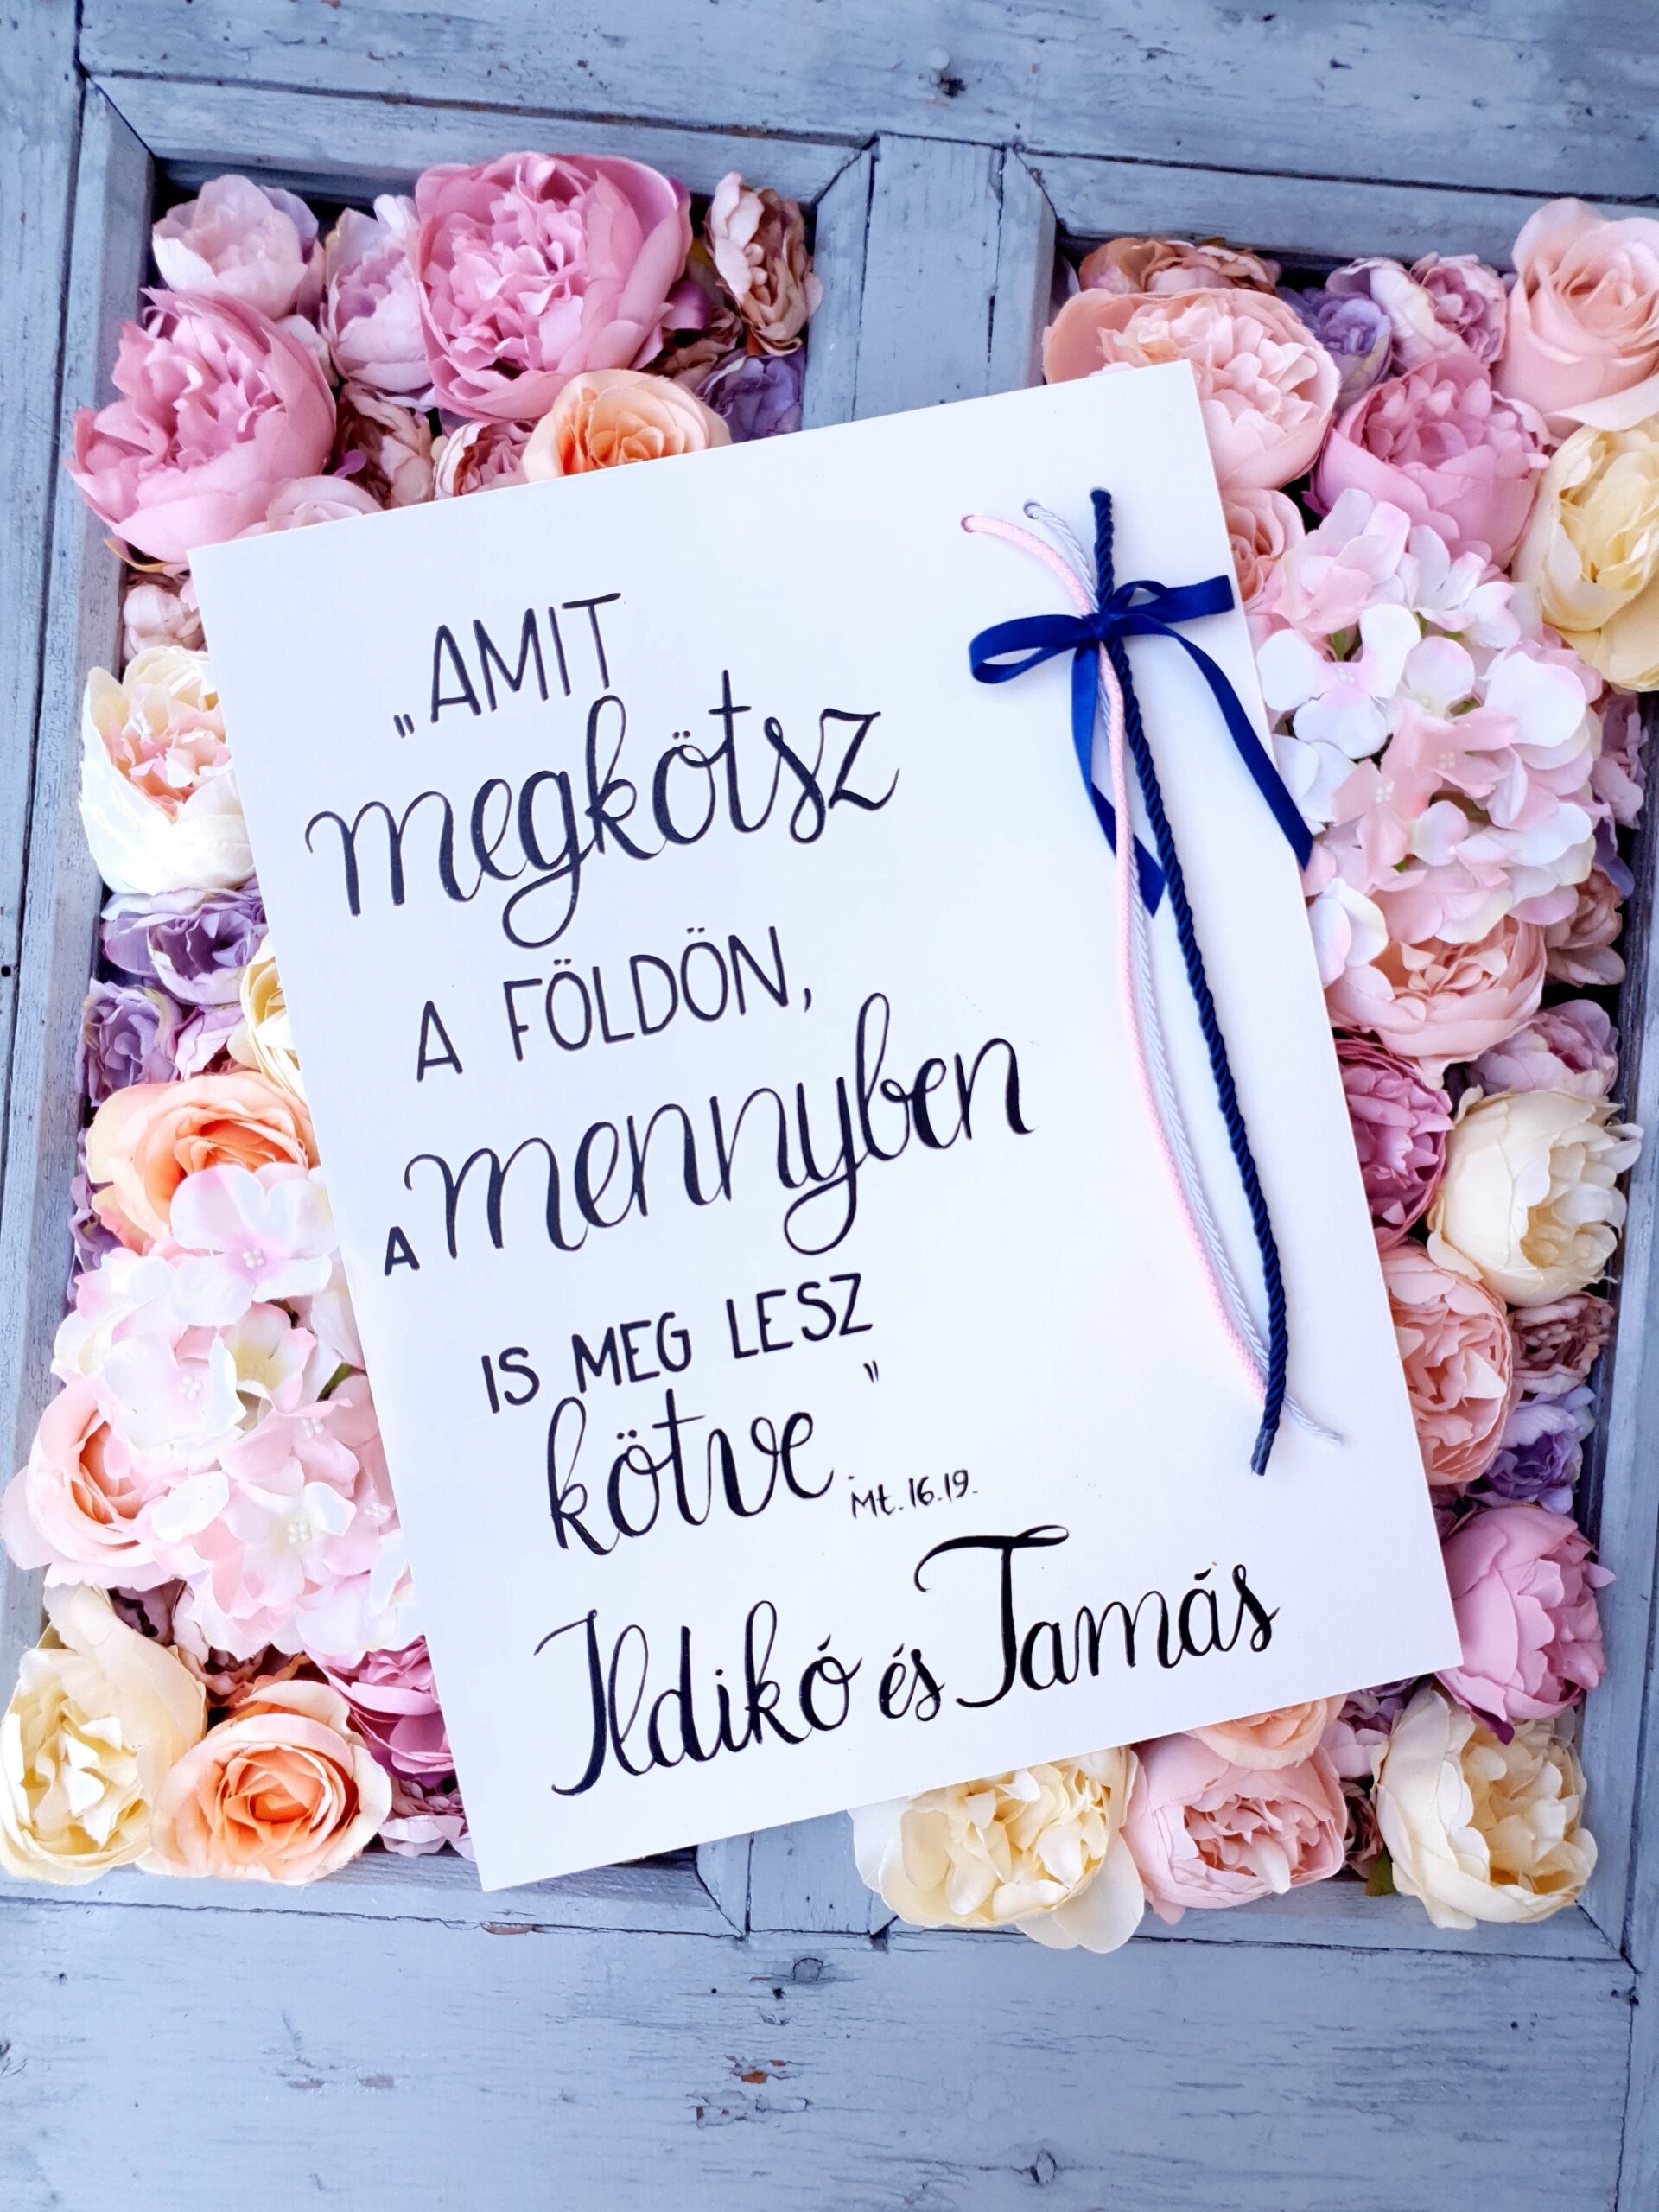 „AMIT
megkötsz
A FÖLDÖN,
A mennyben
IS MEG LESZ
kötve”
Mt. 16.19.
Ildikó és Tamás